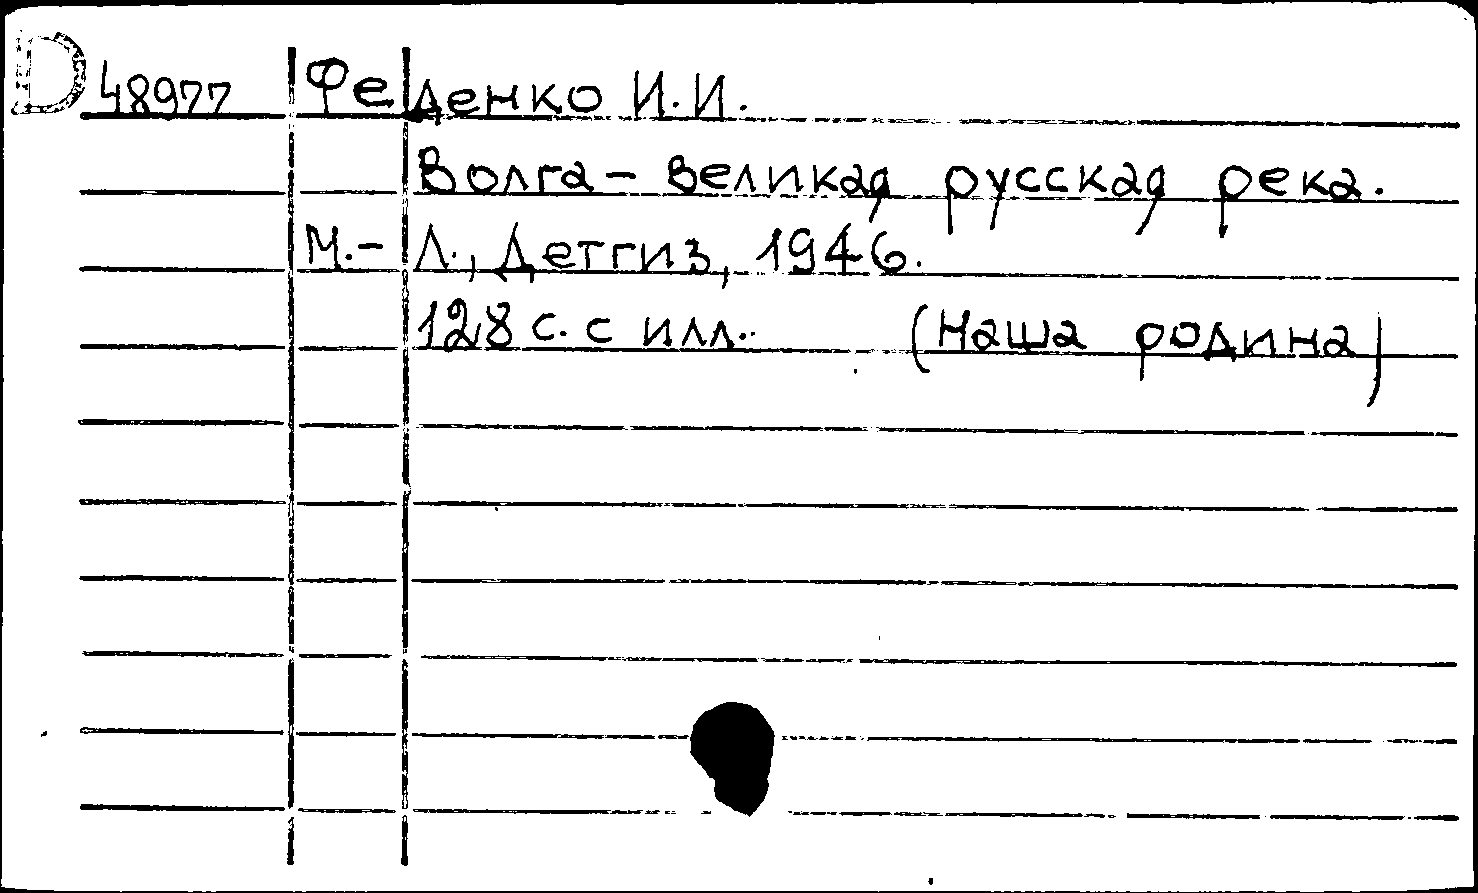 D 48977 Феденко И.И.
Волга – великая русская река.
М.– Л., Детгиз, 1946.
128 с. с илл. (Наша родина)